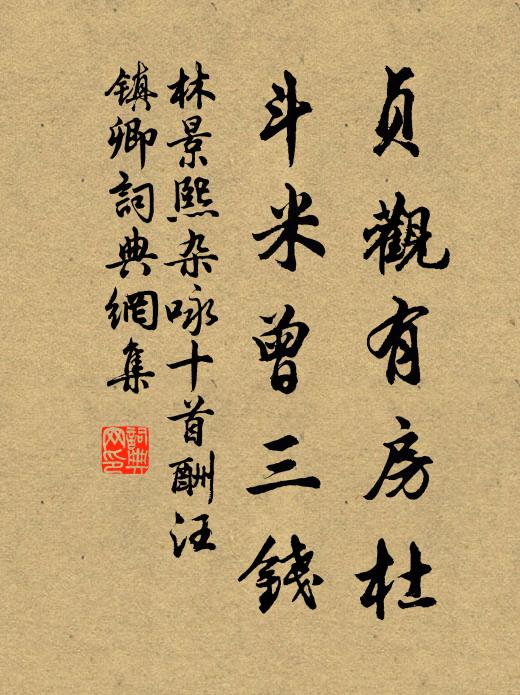 貞觀有房杜
斗米曾三錢
林景熙杂咏十首酬汪
鎮卿詞典網集
詞典網印